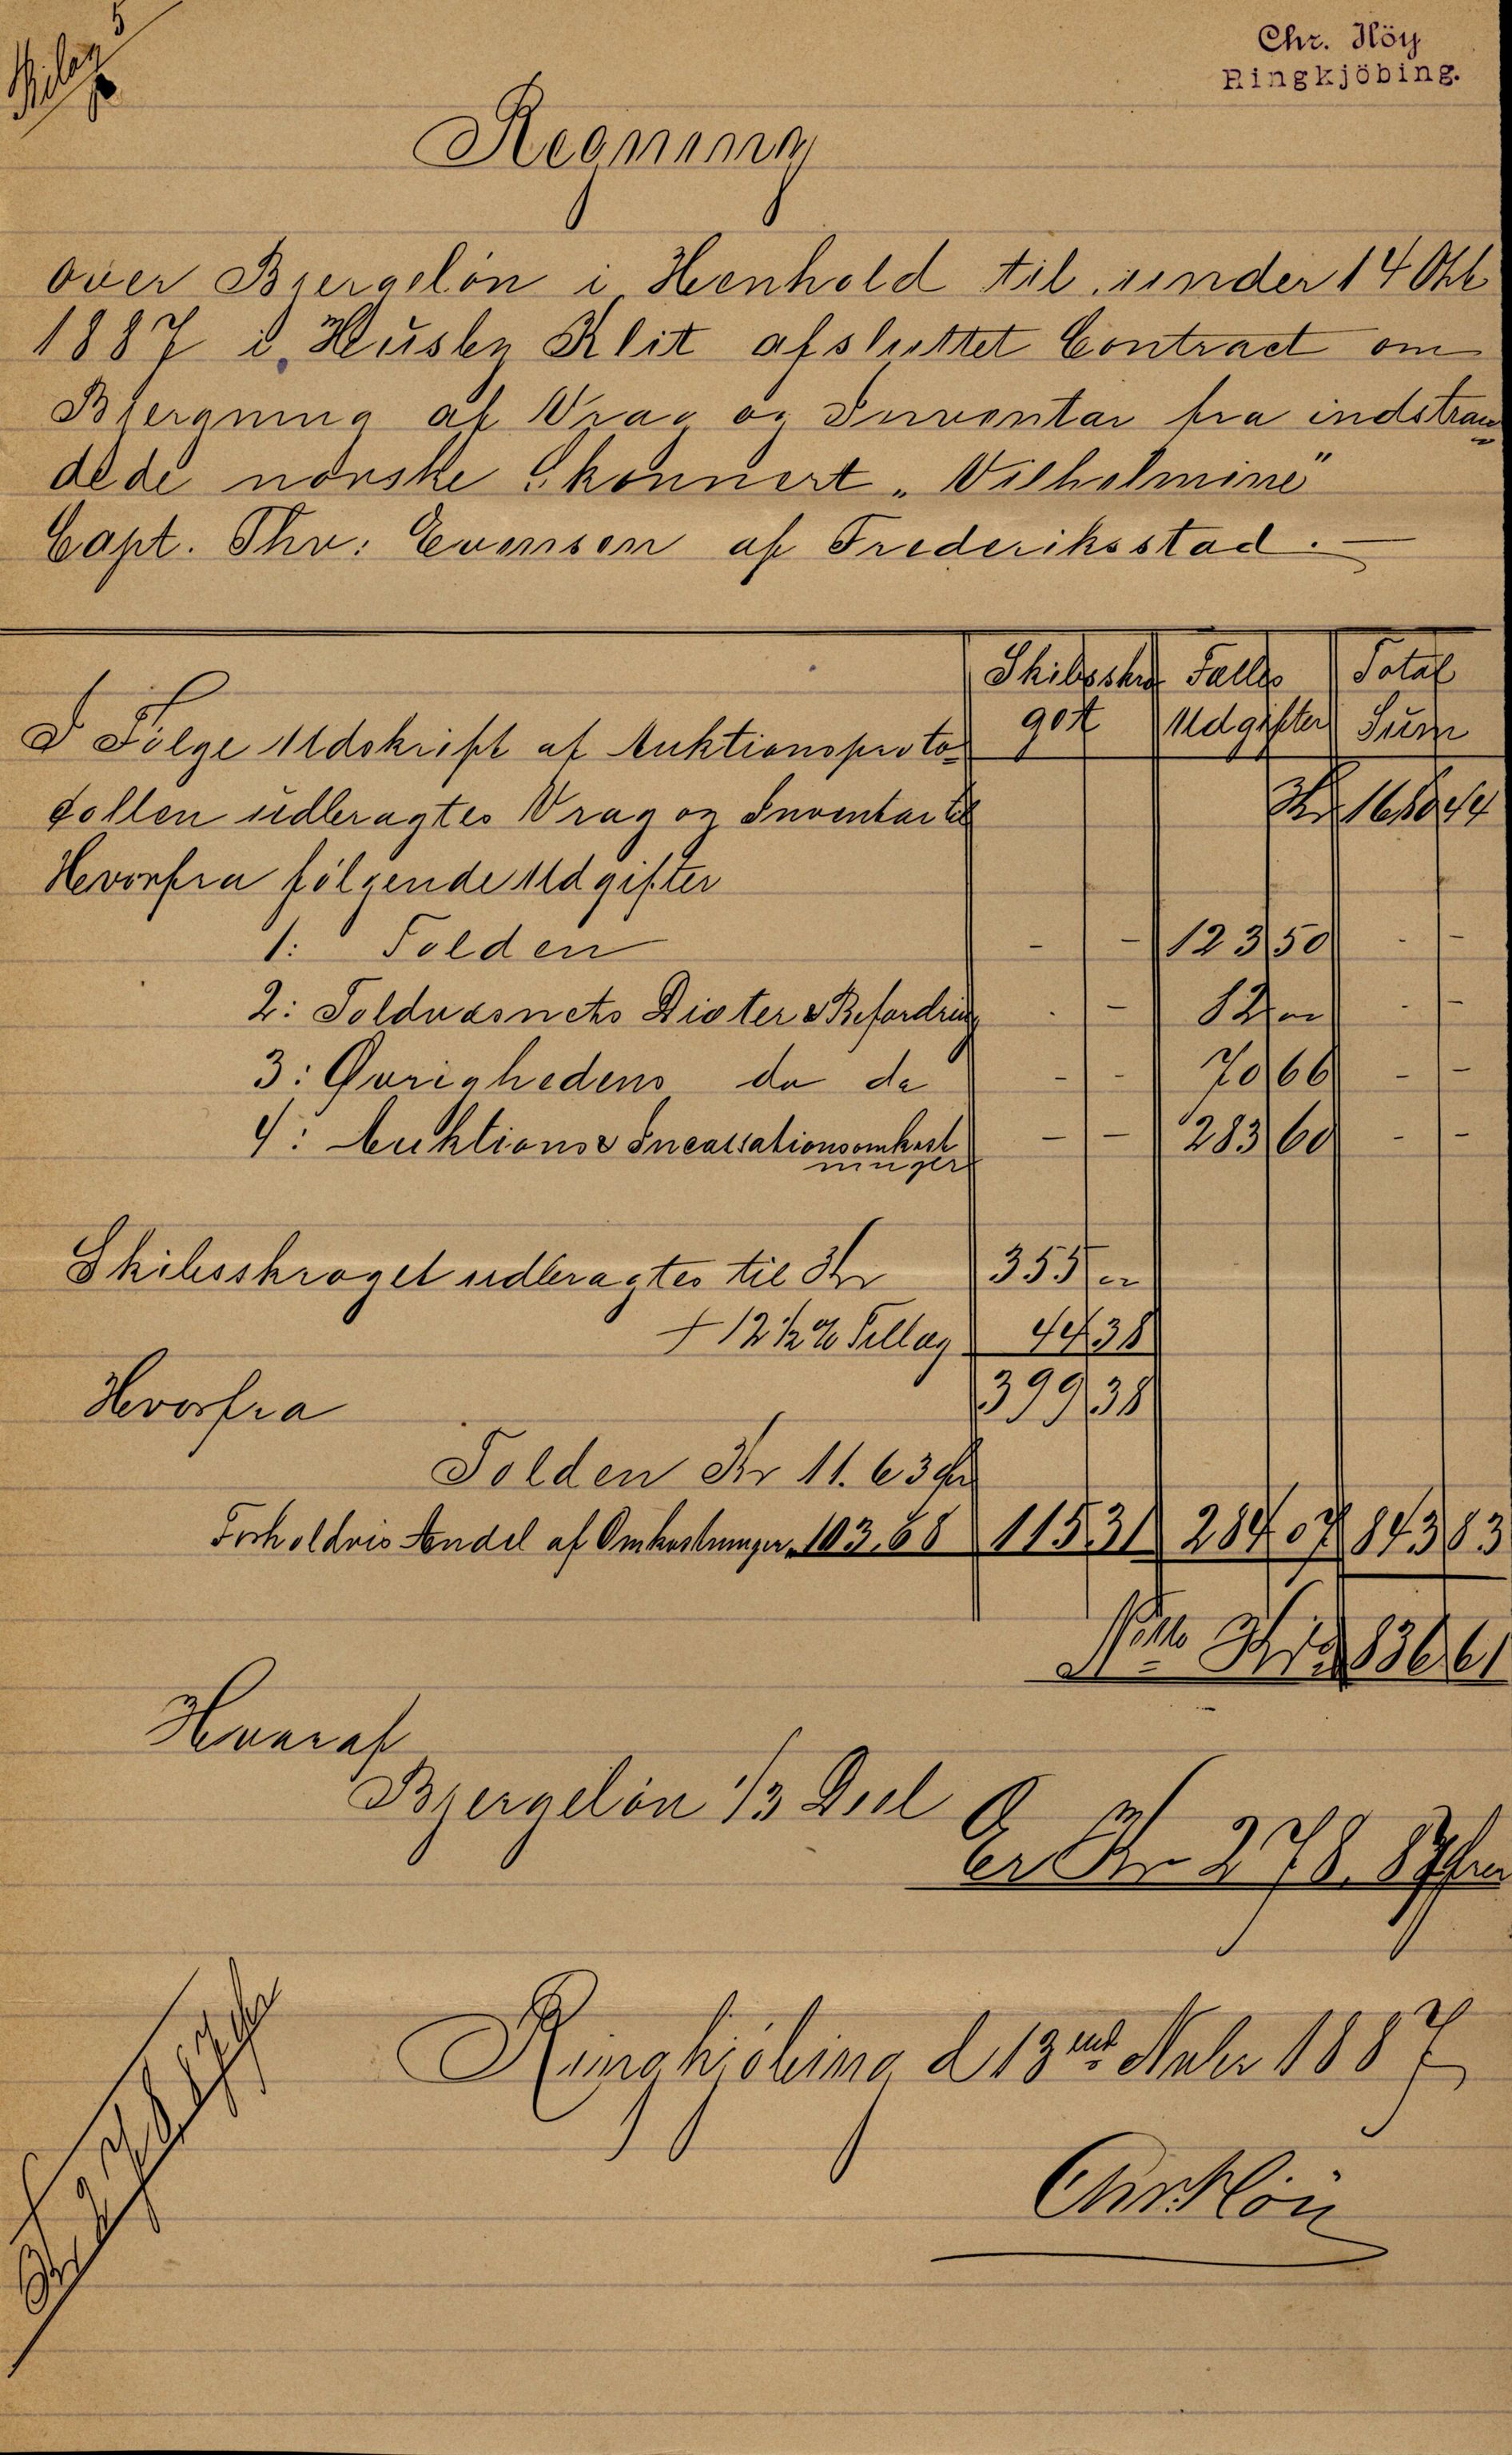 Bilag 5
Chr. Höy
Ringkjöbing.
Regning
over Bjergelön i Henhold til under 14 Okt
1887 i Husby Klit afsluttet Contract om
Bjergning af Vrag og Inventar fra indstran
dede norske Skonnert „Vilhelmine"
Capt. Thv: Evensen af Frederiksstad.
Skibsskro Fælles Total
get Udgifter Sum
I Følge Udskrift af Auktionsproto
collen udbragtes Vrag og Inventar til Kr 1680 44
Hvorfra følgende Udgifter
1: Tolden - - 123 50 - -
2: Toldvæsnets Diæter & Befordring - - 82 - -
3: Øvrighedens do do - - 70 66 - -
4: Auktions & Incassationsomkost - - 283 60 - -
ninger
Skibsskroget udbragtes til Kr 355
+ 12 ½ % Tillæg 44 38
399 38
Hvorfra
Tolden Kr 11. 63
Forholdvis Andel af Omkostninger 103. 68 115 31 284 07 843 83
Netto Kr 836 61
Hvoraf
Bjergelön 1/3 Deel
Er Kr 278. 87
Ringkjöbing d 13 Novbr 1887
Chr. Höy
Kr 278. 87